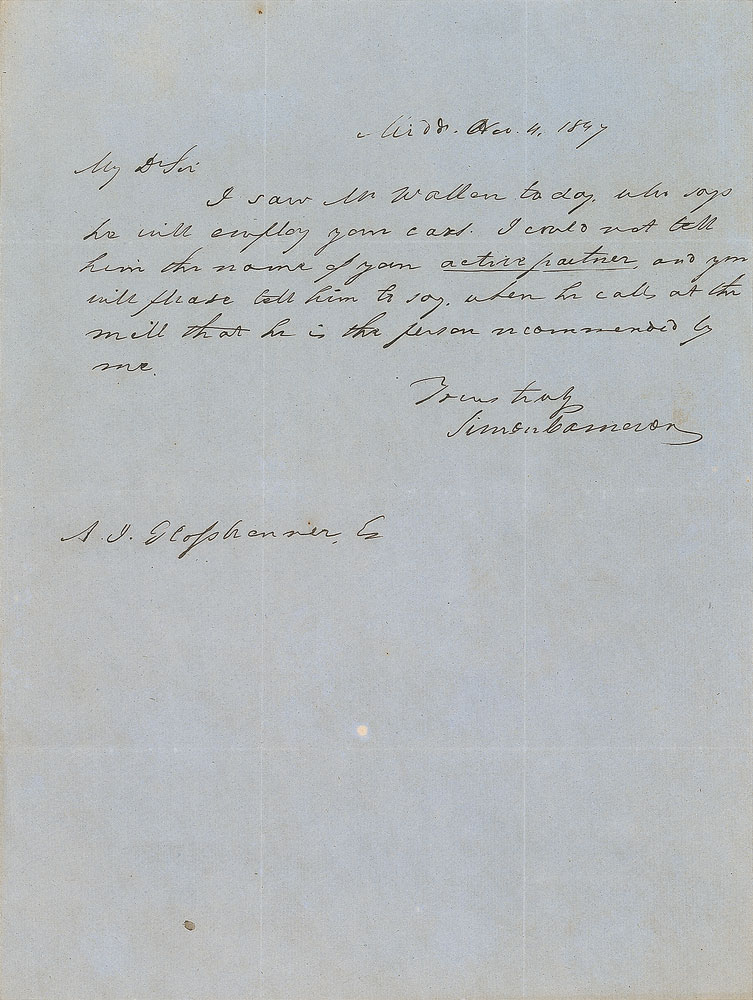 Midd. Nov. 4, 1847
My Dr Sir
I saw Mr Wallen today, who says
he will employ your cars. I could not tell
him the name of your active partner, and you
will please tell him to say, when he calls at the
mill that he is the person recommended by
me.
Yours truly
Simon Cameron
A. J. Glossbrenner, Es